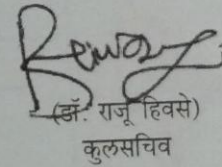 (डॉ. राजू हिवसे)
कुलसचिव